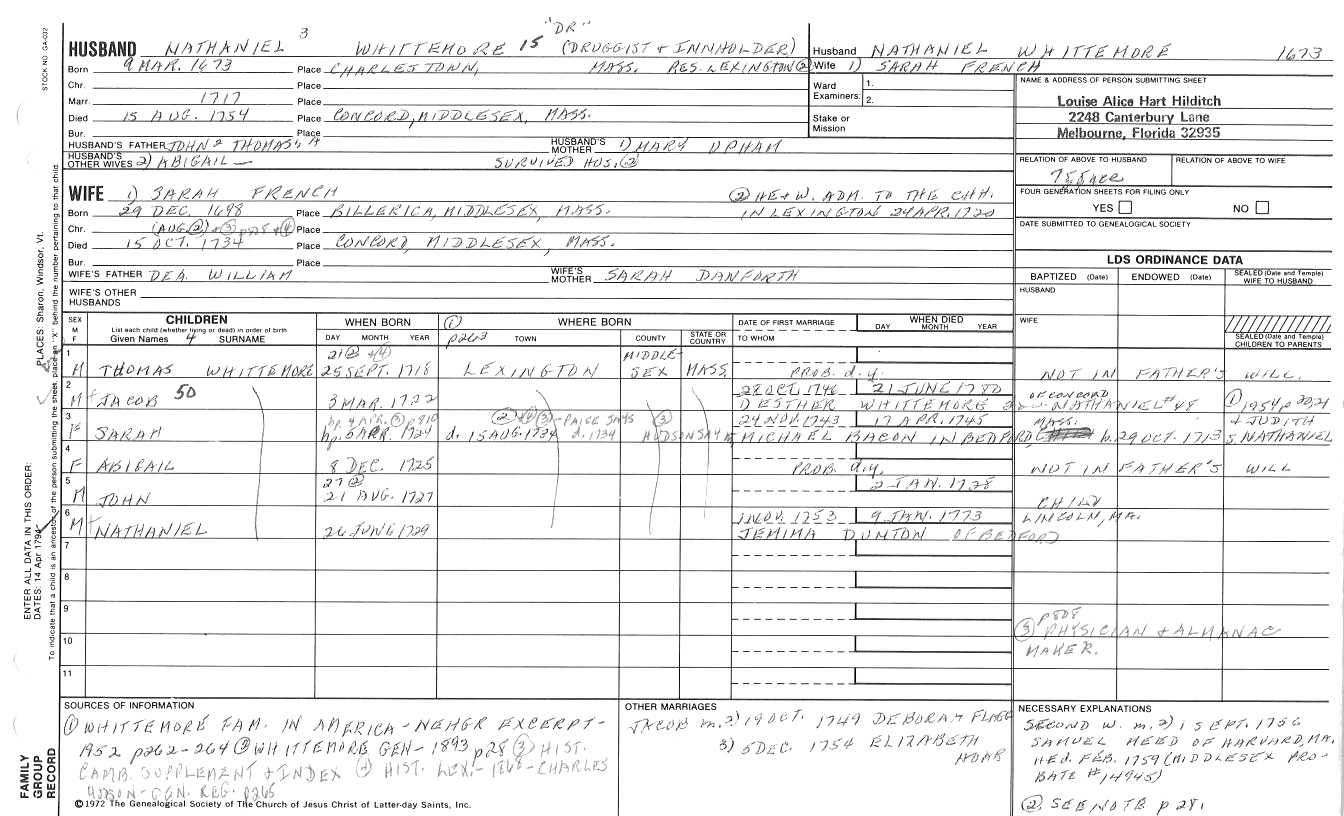 STOCK NO. GA-032
HUSBAND NATHANIEL 3 WHITTEMORE 15 "DR" (DRUGGIST & INNHOLDER)
Husband NATHANIEL WHITTEMORE 1673
Wife 1) SARAH FRENCH
Born 9 MAR. 1673 Place CHARLESTOWN, MASS. RES. LEXINGTON ②
Chr. Place
Marr. 1717 Place
Died 15 AUG. 1754 Place CONCORD, MIDDLESEX, MASS.
Bur. Place
Ward Examiners: 1.
2.
Stake or Mission
NAME & ADDRESS OF PERSON SUBMITTING SHEET
Louise Alice Hart Hilditch
2248 Canterbury Lane
Melbourne, Florida 32935
HUSBAND'S FATHER JOHN 2 THOMAS A HUSBAND'S MOTHER 1) MARY UPHAM
HUSBAND'S OTHER WIVES 2) ABIGAIL — SURVIVED HUS. ②
RELATION OF ABOVE TO HUSBAND
RELATION OF ABOVE TO WIFE
FOUR GENERATION SHEETS FOR FILING ONLY
YES NO
DATE SUBMITTED TO GENEALOGICAL SOCIETY
WIFE 1) SARAH FRENCH ② HE & W. ADM. TO THE CHH.
Born 29 DEC. 1698 Place BILLERICA, MIDDLESEX, MASS. IN LEXINGTON 24 APR. 1720
Chr. (AUG ②) ③ p805 & ④ Place
Died 15 OCT. 1734 Place CONCORD, MIDDLESEX, MASS.
Bur. Place
WIFE'S FATHER DEA. WILLIAM WIFE'S MOTHER SARAH DANFORTH
WIFE'S OTHER HUSBANDS
LDS ORDINANCE DATA
BAPTIZED (Date) ENDOWED (Date) SEALED (Date and Temple) WIFE TO HUSBAND
HUSBAND
WIFE
SEALED (Date and Temple) CHILDREN TO PARENTS
SEX M F
CHILDREN
List each child (whether living or dead) in order of birth
Given Names 4 SURNAME
WHEN BORN
DAY MONTH YEAR
① p263 WHERE BORN
TOWN COUNTY STATE OR COUNTRY
DATE OF FIRST MARRIAGE
TO WHOM
WHEN DIED
DAY MONTH YEAR
1 21 ② & ④ MIDDLE-
M THOMAS WHITTEMORE 25 SEPT. 1718 LEXINGTON SEX MASS. PROB. d.y. NOT IN FATHER'S WILL.
2 28 OCT. 1746 21 JUNE 1780 OF CONCORD
M + JACOB 50 3 MAR. 1722 1) ESTHER WHITTEMORE NATHANIEL #48 ① 1954 p20,21
3 bp. 4 APR. ③ p810 ② ④ ③ - PAIGE SAYS ③ 24 NOV. 1743 17 APR. 1745 MASS. + JUDITH
F SARAH bp. 5 APR. 1724 d. 15 AUG. 1734 d. 1734 HUDSON SAY M MICHAEL BACON IN BEDFORD b. 29 OCT. 1713 S. NATHANIEL
4
F ABIGAIL 8 DEC. 1725 PROB. d.y. NOT IN FATHER'S WILL
5 27 ② 2 JAN. 1728
M JOHN 21 AUG. 1727 CHILD
6 1 NOV. 1753 9 JAN. 1773 LINCOLN, MA.
M + NATHANIEL 26 JUNE 1729 JEMIMA DUNTON OF BEDFORD
7
8
9
10
11
p808
③ PHYSICIAN & ALMANAC
MAKER.
SOURCES OF INFORMATION
① WHITTEMORE FAM. IN AMERICA - NEHGR EXCERPT -
1952 p262-264 ② WHITTEMORE GEN - 1893 p28 ③ HIST.
CAMB. SUPPLEMENT & INDEX ④ HIST. LEX. - 1868 - CHARLES
HUDSON - GEN. REG. p265
©1972 The Genealogical Society of The Church of Jesus Christ of Latter-day Saints, Inc.
OTHER MARRIAGES
JACOB m. 2) 19 OCT. 1749 DEBORAH FLAGG
3) 5 DEC. 1754 ELIZABETH
NECESSARY EXPLANATIONS
SECOND W. m. 2) 1 SEPT. 1756
SAMUEL MEED OF HARVARD, MA.
HE d. FEB. 1759 (MIDDLESEX PRO-
BATE #14945)
② SEE NOTE p 281
FAMILY GROUP RECORD
ENTER ALL DATA IN THIS ORDER:
DATES: 14 Apr 1794
PLACES: Sharon, Windsor, Vt.
To indicate that a child is an ancestor of the person submitting the sheet, place an "X" behind the number pertaining to that child.